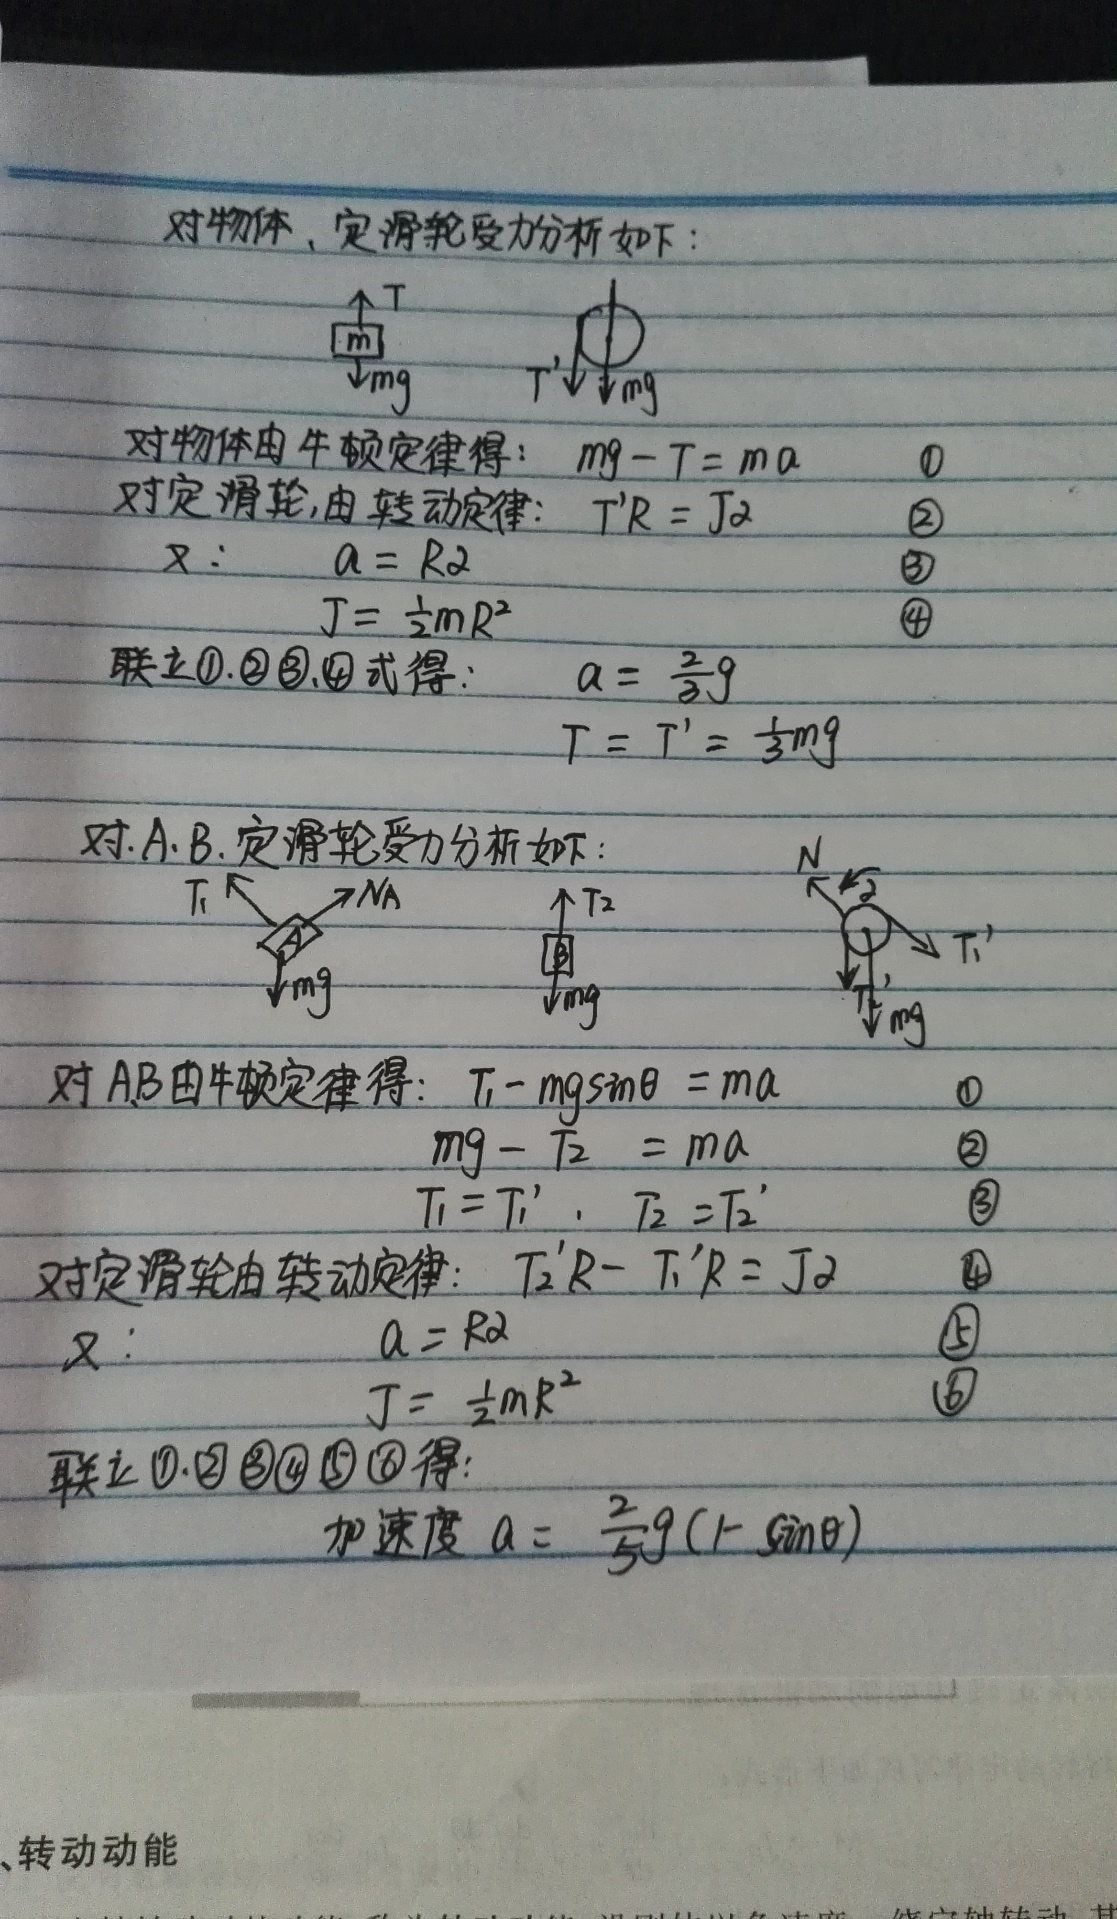 对物体、定滑轮受力分析如下:
T
m
mg
T' mg
对物体由牛顿定律得: mg-T=ma ①
对定滑轮,由转动定律: T'R=Jα ②
又: a=Rα ③
J=½mR² ④
联立①.②③.④式得: a=2/3g
T=T'=1/3mg
对.A.B.定滑轮受力分析如下:
T₁ NA
A
mg
T2
B
mg
N α
T₁'
T₂'
mg
对A.B由牛顿定律得: T₁-mgsinθ=ma ①
mg-T₂=ma ②
T₁=T₁', T₂=T₂' ③
对定滑轮由转动定律: T₂'R-T₁'R=Jα ④
又: a=Rα ⑤
J=½mR² ⑥
联立①.②③④⑤⑥得:
加速度 a=2/5g(1-sinθ)
、转动动能